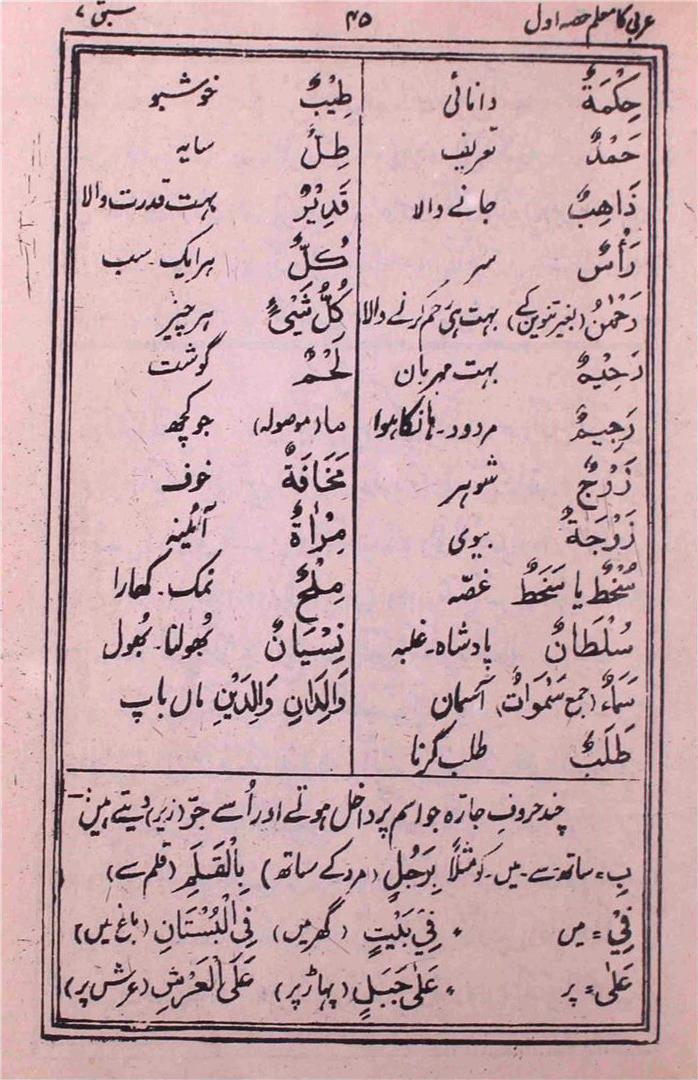 عربی کا معلم حصہ اول ۴۵ سبق ۷
حِكْمَةٌ دانائی
حَمْدٌ تعریف
ذَاهِبٌ جانے والا
رَأْسٌ سر
رَحْمٰنُ (بغیر تنوین کے) بہت ہی رحم کرنے والا
رَحِيْمٌ بہت مہربان
رَجِيمٌ مردود۔ ہانکا ہوا
زَوْجٌ شوہر
زَوْجَةٌ بیوی
سُخْطٌ یا سَخَطٌ غصّہ
سُلْطَانٌ پادشاہ۔ غلبہ
سَمَاءٌ (جمع سَمٰوَاتٌ) آسمان
طَلَبٌ طلب کرنا
طِيْبٌ خوشبو
ظِلٌّ سایہ
قَدِيْرٌ بہت قدرت والا
كُلٌّ ہر ایک۔ سب
كُلُّ شَيْءٍ ہر چیز
لَحْمٌ گوشت
ما (موصولہ) جو کچھ
مَخَافَةٌ خوف
مِرْاٰةٌ آئینہ
مِلْحٌ نمک۔ کھارا
نِسْيَانٌ بُھولنا۔ بُھول
وَالِدَانِ وَالِدَيْنِ ماں باپ
چند حروفِ جارّہ جو اسم پر داخل ہوتے اور اُسے جرّ (زیر) دیتے ہیں:-
بِ = ساتھ۔ سے۔ میں۔ کو مثلاً بِرَجُلٍ (مرد کے ساتھ) بِالْقَلَمِ (قلم سے)
فِيْ = میں ״ فِيْ بَيْتٍ (گھر میں) فِي الْبُسْتَانِ (باغ میں)
عَلٰى = پر ״ عَلٰى جَبَلٍ (پہاڑ پر) عَلَى الْعَرْشِ (عرش پر)